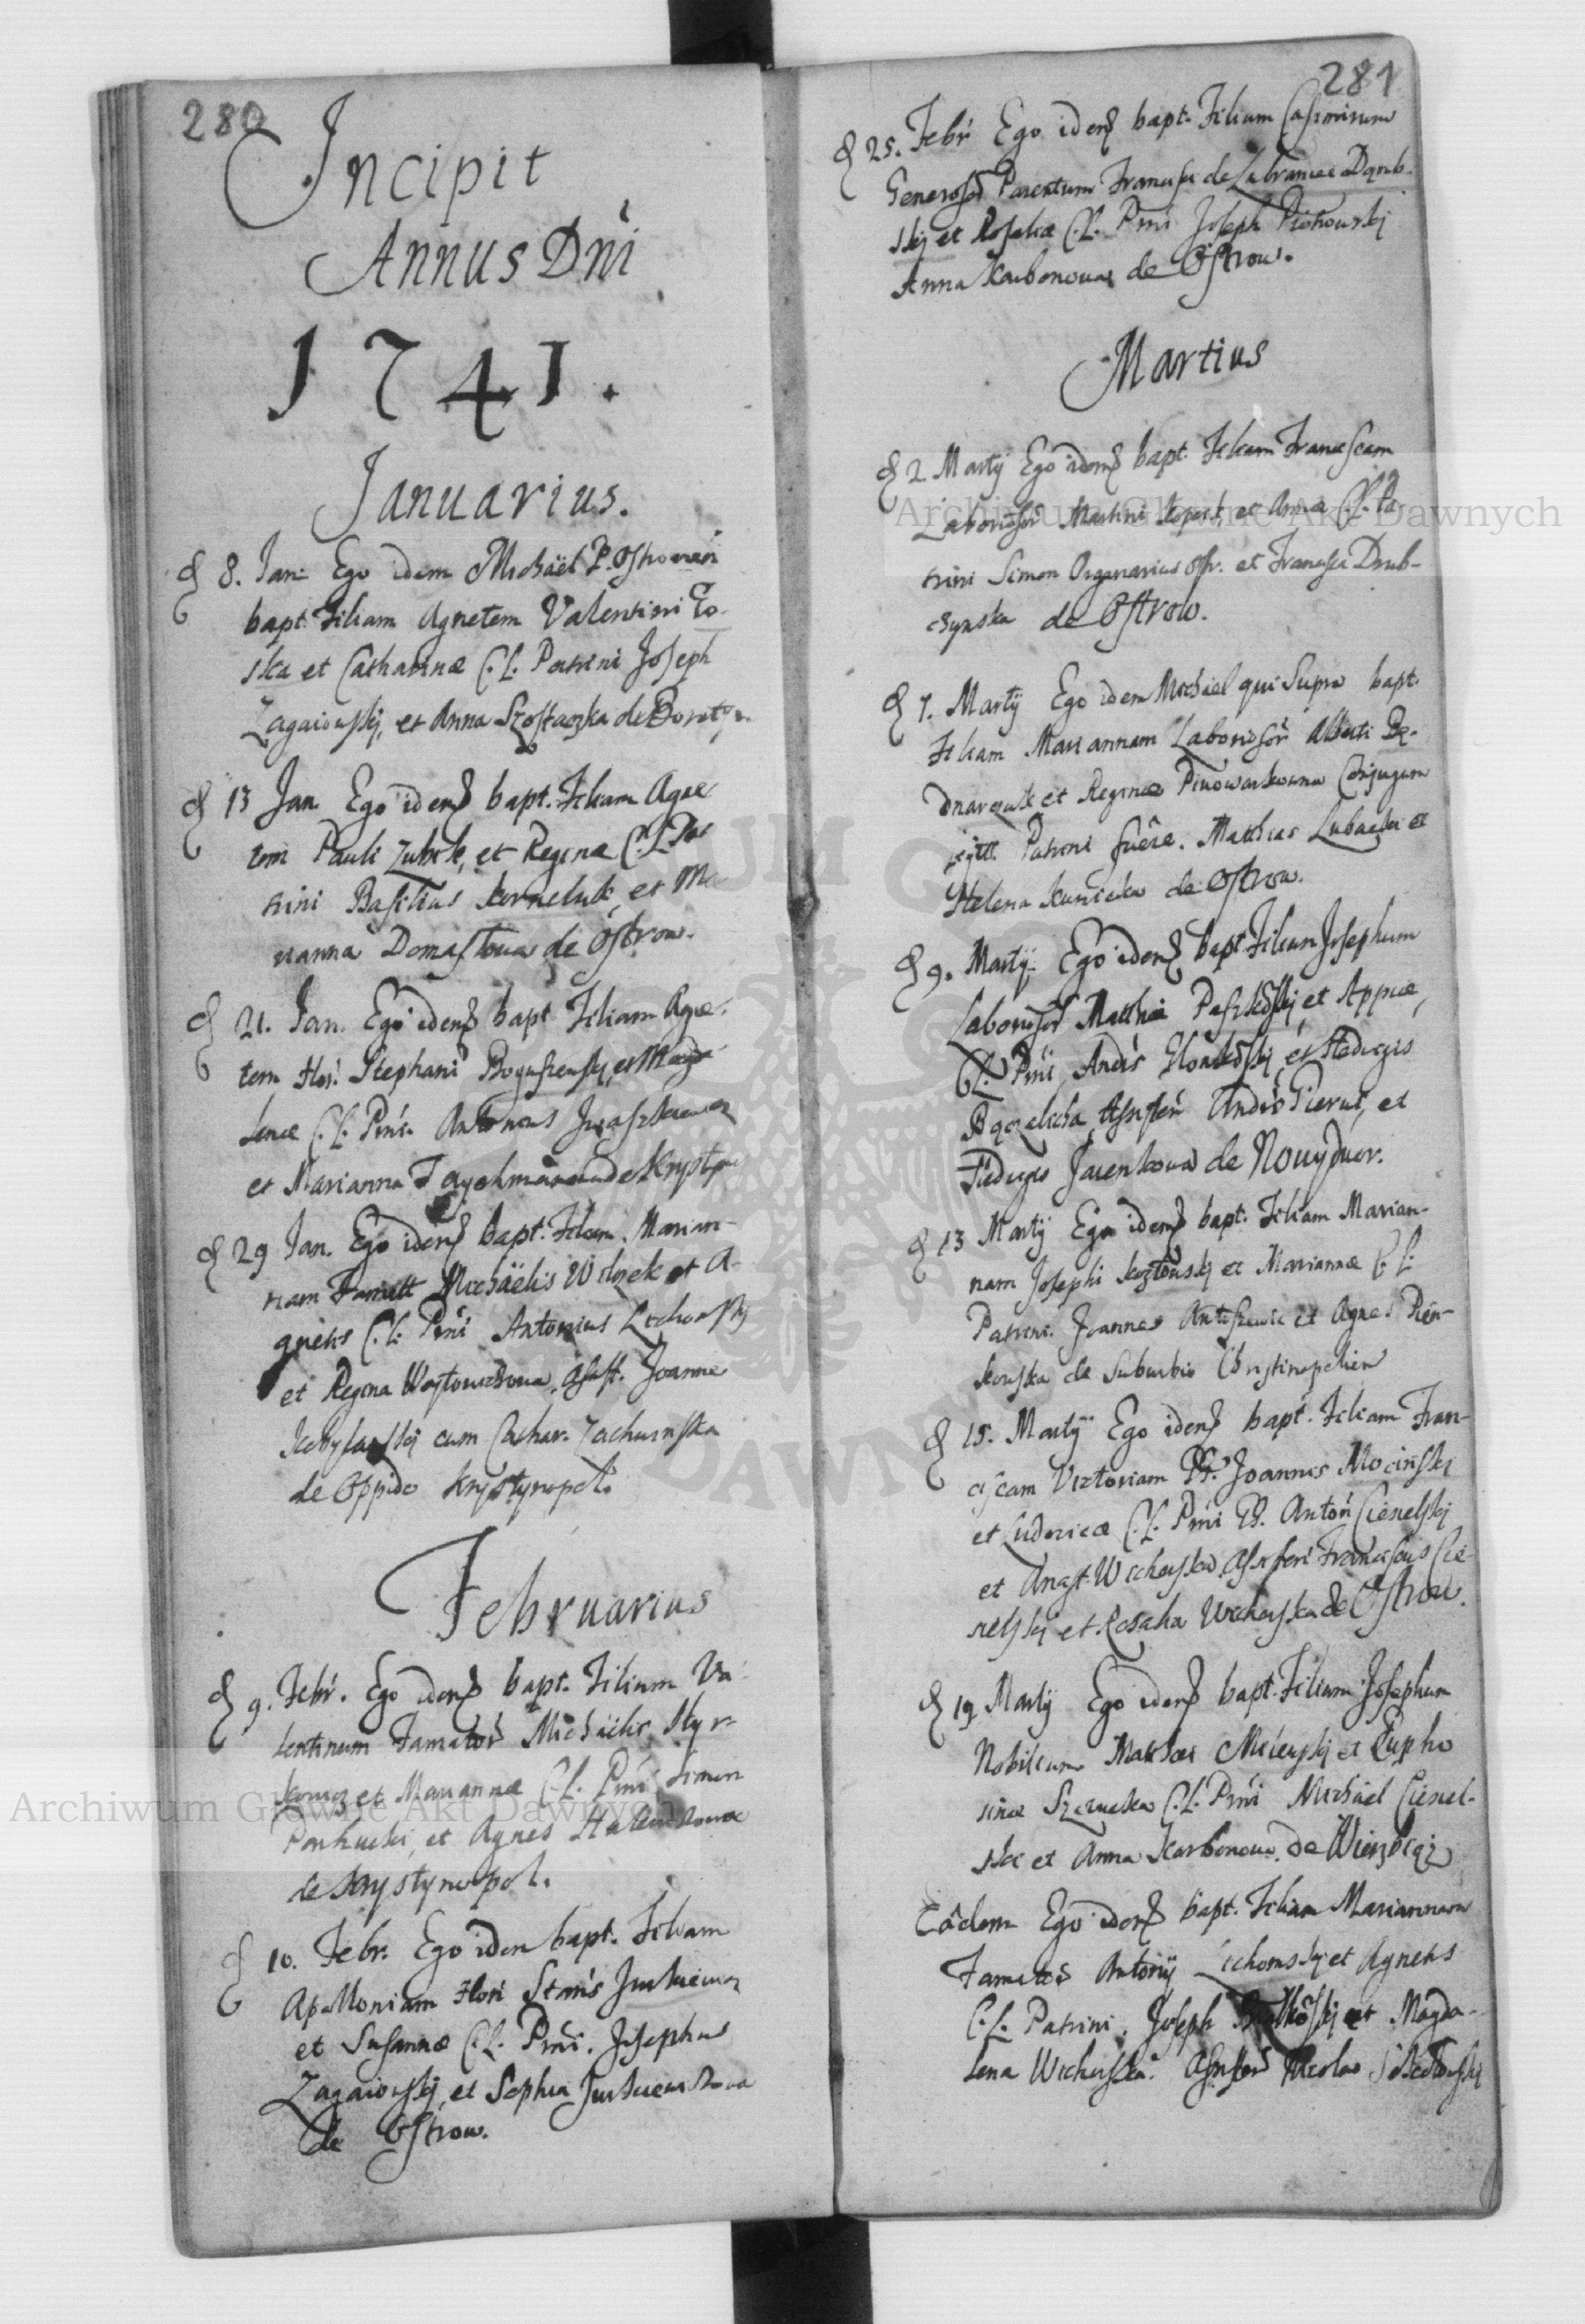 280
Incipit
Annus Dñi
1741.
Januarius.
8. Jan. Ego idem Michaël P. Ostrovień
bapt. Filiam Agnetem Valentini Co-
ska et Catharinæ C. L. Patrini Joseph
Zagaiowskÿ, et Anna Szostaczka de Boraty
13 Jan. Ego idem bapt. Filiam Agne
tem Pauli Zubek, et Reginæ C. L. Pat
rini Basilius Korneluk, et Ma
rianna Domastowa de Ostrow.
21. Jan. Ego idem bapt. Filiam Agne
tem Hon. Stephani et Magda
lenæ C. L. Pñi. Antonius
et Marianna de Krystyn
29 Jan. Ego idem bapt. Filiam Marian-
nam Famati Michaëlis Wilczek et A-
gnetis C. L. Pñi Antonius Lechowskÿ
et Regina Woytowiczowa, Assist. Joanne
cum Cathar. Zachurnska
de Oppido Krystynopol.
Februarius
9. Febr. Ego idem bapt. Filium Va
lentinum Famator Michaëlis Hyr-
et Mariannæ C. L. Pñi Simon
et Agnes
de Krystynopol.
10. Febr. Ego idem bapt. Filiam
Apolloniam Hon Stanis Jurkiewicz
et Susannæ C. L. Pñi. Josephus
Zagaiowskÿ, et Sophia Jurkiewiczowa
de Ostrow.
281
25. Febr Ego idem bapt. Filium Casimirum
Generosor Parentum Francisci de Lubraniec Dąmb-
skÿ et Rosaliæ C. L. Pñi Joseph Piotrowskÿ
Anna Karbonowa de Ostrow.
Martius
2 Martÿ Ego idem bapt. Filiam Franciscam
Laboriosor Martini et Annæ C. L. Pa-
trini Simon Organarius Ostr. et Francisca Dmb-
czynska de Ostrow.
7. Martÿ Ego idem Michaël qui Supra bapt.
Filiam Mariannam Laboriosor Alberti Be-
dnarczuk et Reginæ Piwowarkowna Conjugum
legitt. Patrini fuêre. Matthias Lubacki et
Helena Kunicka de Ostrow.
9. Martÿ. Ego idem bapt. Filium Josephum
Laboriosor Matthiæ et
C. L. Pñi Andrs et Hedvigis
Assisten Andrs et
Hedvigis de Nowydwor.
13 Martÿ Ego idem bapt. Filiam Marian-
nam Josephi Kozłowskÿ et Mariannæ C. L.
Patrini. Joannes et Agnes Pień-
kowska de Suburbio Christinopolien
15. Martÿ Ego idem bapt. Filiam Fran-
ciscam Victoriam Joannis Mocinskÿ
et Ludovicæ C. L. Pñi Anton Cienelskÿ
et Anast. Wicherska Assisten Franciscus Cie-
nelskÿ et Rosalia Wicherska de Ostrow.
19 Martÿ Ego idem bapt. Filium Josephum
Nobilium Mathæi et Eupho
sinæ C. L. Pñi Michaël Cienel-
ski et Anna Karbonowa de Wierzbiąż
Eâdem Ego idem bapt. Filiam Mariannam
Famator Antonÿ Lechowskÿ et Agnetis
C. L. Patrini. Joseph et Magda-
lena Wicherska. Nicolao
Archiwum Główne Akt Dawnych
Archiwum Główne Akt Dawnych